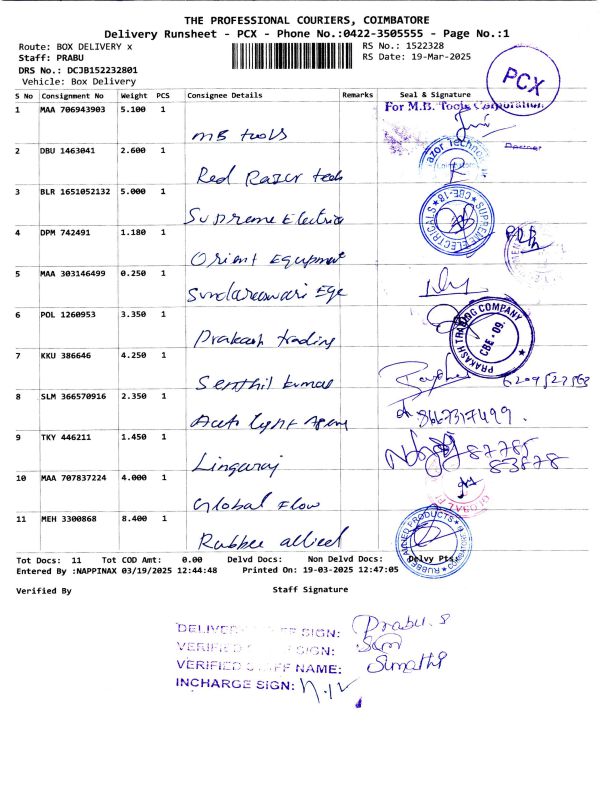 THE PROFESSIONAL COURIERS, COIMBATORE
Delivery Runsheet - PCX - Phone No.:0422-3505555 - Page No.:1
Route: BOX DELIVERY x RS No.: 1522328
Staff: PRABU RS Date: 19-Mar-2025
DRS No.: DCJB152232801
Vehicle: Box Delivery
PCX
S No Consignment No Weight PCS Consignee Details Remarks Seal & Signature
1 MAA 706943903 5.100 1
For M.B. Tools Corporation
MB tools
2 DBU 1463041 2.600 1
Red Razor
3 BLR 1651052132 5.000 1
SUPREME ELECTRICALS CBE-18
Supreme Electrics
4 DPM 742491 1.180 1
Orient Equipment
5 MAA 303146499 0.250 1
Sundareswari
6 POL 1260953 3.350 1
PRAKASH TRADING COMPANY CBE - 09.
Prakash trading
7 KKU 386646 4.250 1
Senthil kumar
8 SLM 366570916 2.350 1
8667317499
9 TKY 446211 1.450 1
87785
83878
Lingaraj
10 MAA 707837224 4.000 1
GLOBAL
Global Flow
11 MEH 3300868 8.400 1
RUBBER PRODUCTS
Rubber allied
Tot Docs: 11 Tot COD Amt: 0.00 Delvd Docs: Non Delvd Docs: Delvy Pts:
Entered By :NAPPINAX 03/19/2025 12:44:48 Printed On: 19-03-2025 12:47:05
Verified By Staff Signature
SIGN: Prabu. S
VERIFIED SIGN:
VERIFIED STAFF NAME: Sumathi
INCHARGE SIGN: